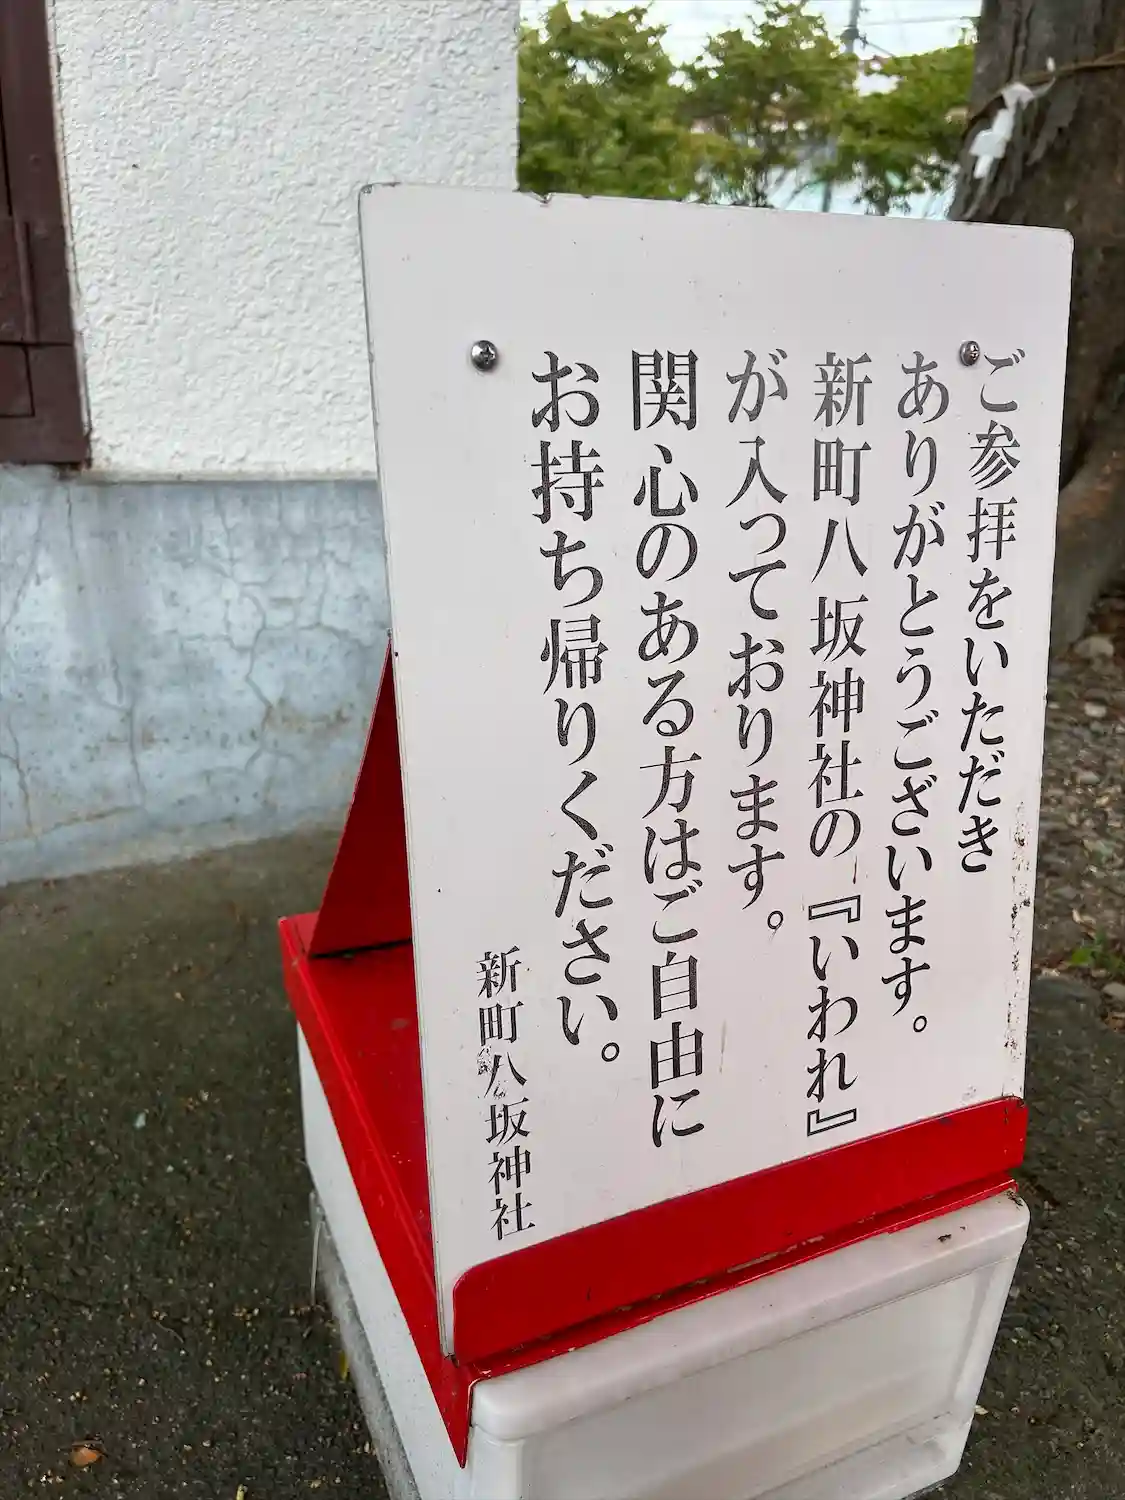 ご参拝をいただき
ありがとうございます。
新町八坂神社の『いわれ』
が入っております。
関心のある方はご自由に
お持ち帰りください。
新町八坂神社